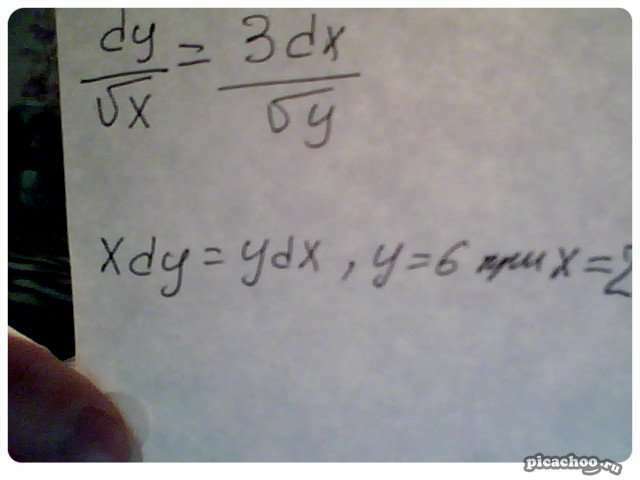 dy/√x = 3dx/√y
xdy = ydx, y = 6 при x = 2
picachoo.ru